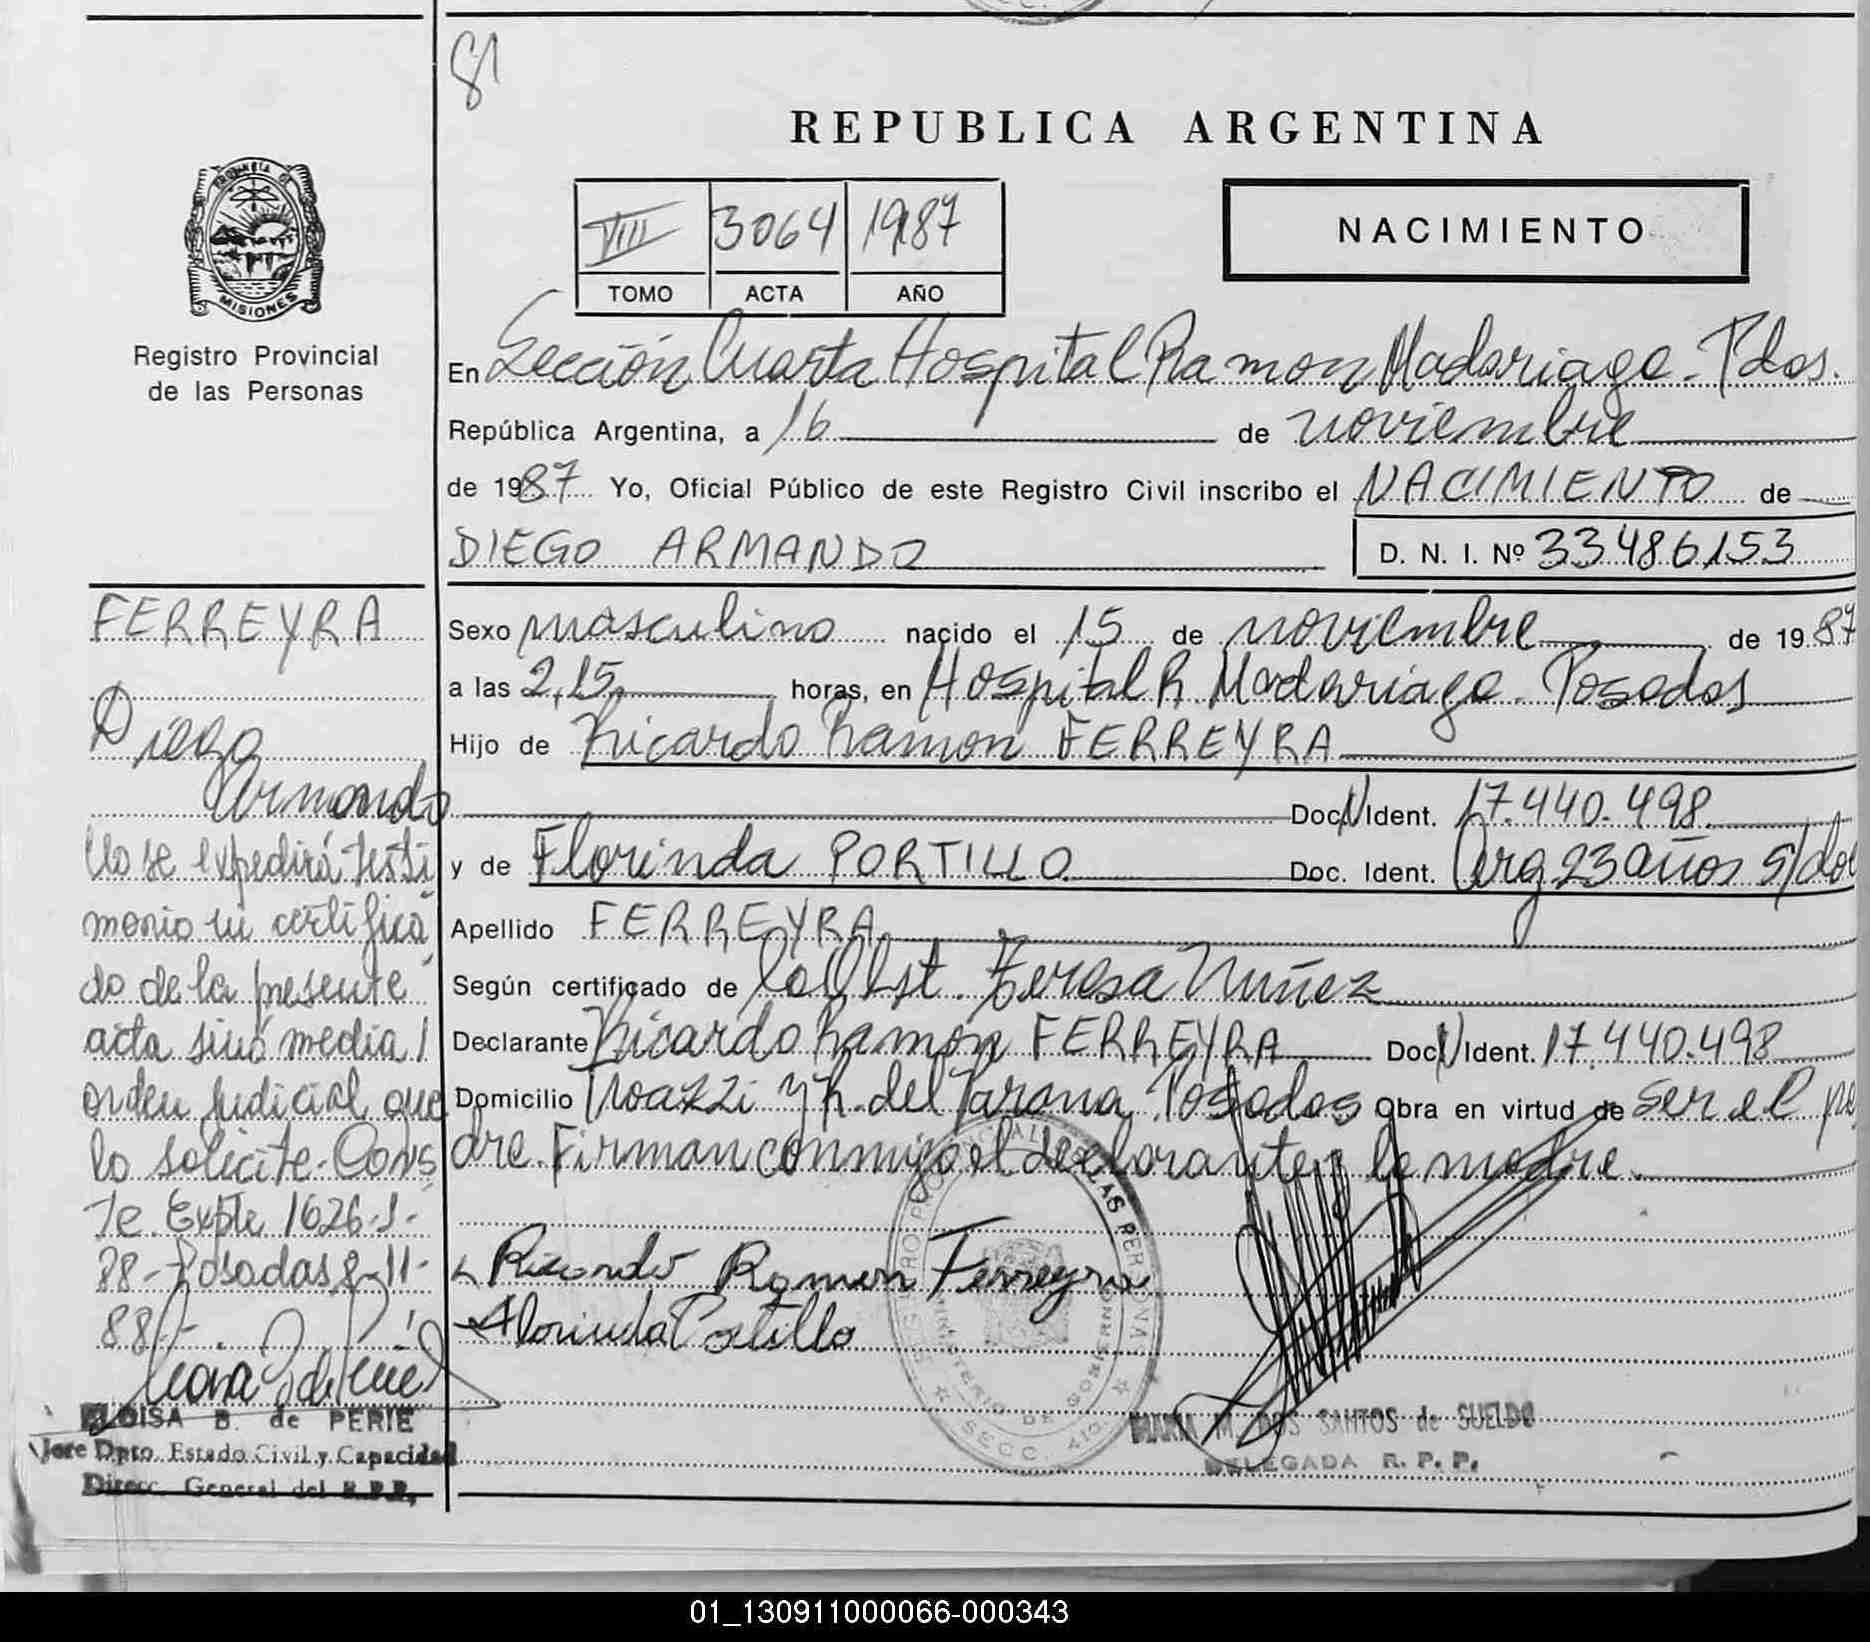 81
REPUBLICA ARGENTINA
PROVINCIA DE
MISIONES
Registro Provincial
de las Personas
VIII 3064 1987
TOMO ACTA AÑO
NACIMIENTO
En Sección Cuarta Hospital Ramon Madariaga - Pdas.
República Argentina, a 16 de noviembre
de 1987 Yo, Oficial Público de este Registro Civil inscribo el NACIMIENTO de
DIEGO ARMANDO
D. N. I. Nº 33486153
Sexo masculino nacido el 15 de noviembre de 1987
a las 2,15 horas, en Hospital R. Madariaga - Posadas
Hijo de Ricardo Ramon FERREYRA
Doc. N Ident. 17.440.498
y de Florinda PORTILLO Doc. Ident. Arg 23 años s/doc
Apellido FERREYRA
Según certificado de la Obst. Teresa Nuñez
Declarante Ricardo Ramon FERREYRA Doc. N Ident. 17.440.498
Domicilio y R. del Parana Posadas Obra en virtud de ser el pa
dre. Firman conmigo el declarante y la madre.
Ricardo Ramon Ferreyra
Florinda Portillo
REGISTRO PROVINCIAL DE LAS PERSONAS
MINISTERIO DE GOBIERNO
SECC. 4ta
MARIA M. DOS SANTOS de SUELDO
DELEGADA R. P. P.
FERREYRA
Diego
Armando
No se expedirá testi
monio ni certifica
do de la presente
acta sinó media/
orden judicial que
lo solicite. Cons
te. Expte 1626-1-
88 - Posadas, 8-11-
88 -
ELOISA B. de PERIE
Jefe Dpto. Estado Civil y Capacidad
Direcc. General del R.P.P.
01_130911000066-000343